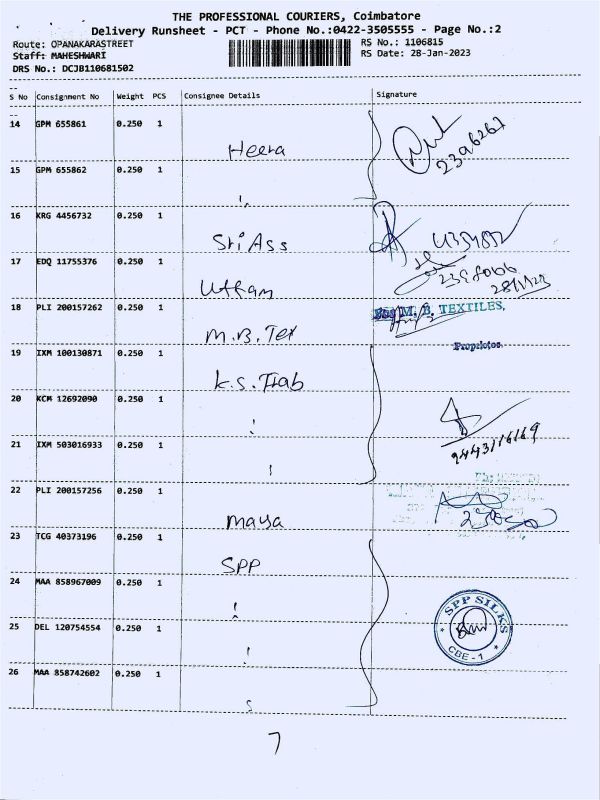 THE PROFESSIONAL COURIERS, Coimbatore
Delivery Runsheet - PCT - Phone No.:0422-3505555 - Page No.:2
Route: OPANAKARASTREET
RS No.: 1106815
Staff: MAHESHWARI
RS Date: 28-Jan-2023
DRS No.: DCJB110681502
S No Consignment No Weight PCS Consignee Details Signature
14 GPM 655861 0.250 1
Heera
15 GPM 655862 0.250 1
16 KRG 4456732 0.250 1
Sri Ass
17 EDQ 11755376 0.250 1
Uttam
18 PLI 200157262 0.250 1
M. B. TEXTILES,
M.B. Tex
Proprietor
19 IXM 100130871 0.250 1
K.S. Trab
20 KCM 12692090 0.250 1
21 IXM 503016933 0.250 1
9443116169
22 PLI 200157256 0.250 1
Maya
23 TCG 40373196 0.250 1
SPP
24 MAA 858967009 0.250 1
SPP SILKS
25 DEL 120754554 0.250 1
CBE - 1
26 MAA 858742602 0.250 1
7